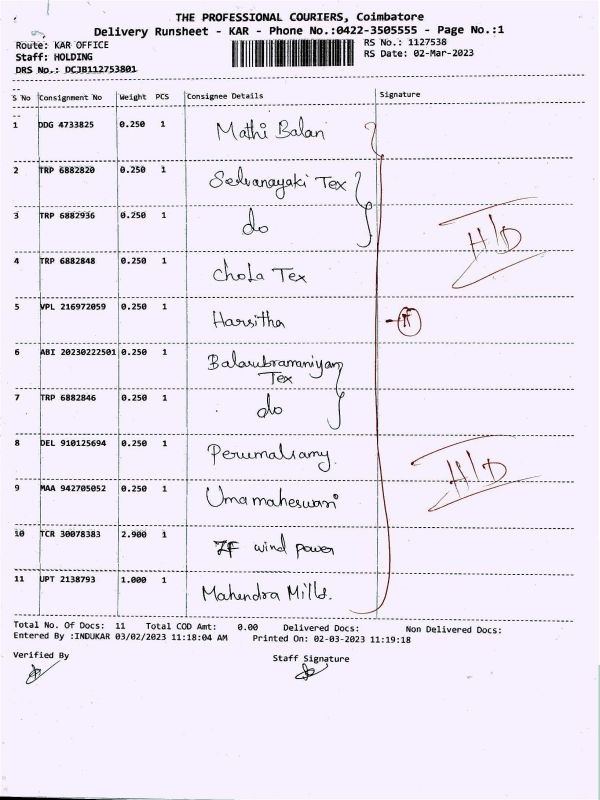 THE PROFESSIONAL COURIERS, Coimbatore
Delivery Runsheet - KAR - Phone No.:0422-3505555 - Page No.:1
Route: KAR OFFICE
RS No.: 1127538
Staff: HOLDING
RS Date: 02-Mar-2023
DRS No.: DCJB112753801
S No Consignment No Weight PCS Consignee Details Signature
1 DDG 4733825 0.250 1 Mathi Balan
2 TRP 6882820 0.250 1 Selvanayaki Tex
3 TRP 6882936 0.250 1 do
H/D
4 TRP 6882848 0.250 1 Chola Tex
5 VPL 216972059 0.250 1 Harsitha
6 ABI 20230222501 0.250 1 Balasubramaniyam
Tex
7 TRP 6882846 0.250 1 do
8 DEL 910125694 0.250 1 Perumalsamy.
H/D
9 MAA 942705052 0.250 1 Umamaheswari
10 TCR 30078383 2.900 1 ZF wind power
11 UPT 2138793 1.000 1 Mahendra Mills.
Total No. Of Docs: 11 Total COD Amt: 0.00 Delivered Docs: Non Delivered Docs:
Entered By :INDUKAR 03/02/2023 11:18:04 AM Printed On: 02-03-2023 11:19:18
Verified By Staff Signature